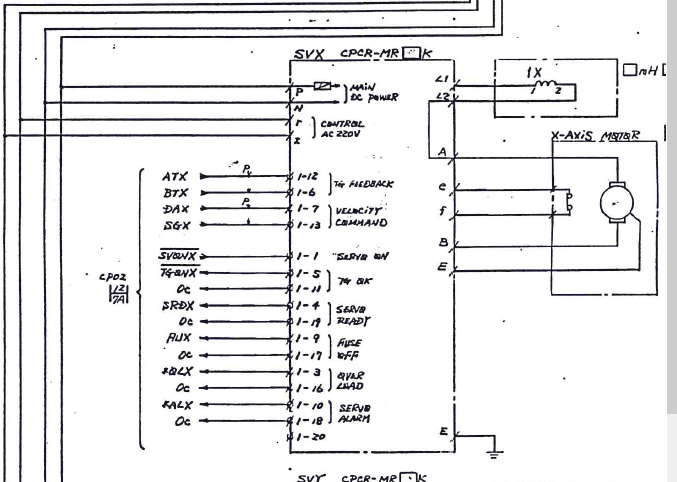 SVX CPCR-MR□K
P
N
r
MAIN
DC POWER
CONTROL
AC 220V
L1
L2
1X
1 2
□mH
X-AXIS MOTOR
A
e
f
B
E
ATX 1-12
BTX 1-6
TG FEEDBACK
DAX 1-7
SGX 1-13
VELOCITY
COMMAND
SVONX 1-1 SERVO ON
TGONX 1-5
OC 1-11
TG OK
SRDX 1-4
OC 1-19
SERVO
READY
FUX 1-9
OC 1-17
FUSE
OFF
1-3
OC 1-16
OVER
LOAD
1-10
OC 1-18
SERVO
ALARM
1-20
CP02
12
7A
E
SVY CPCR-MR□K